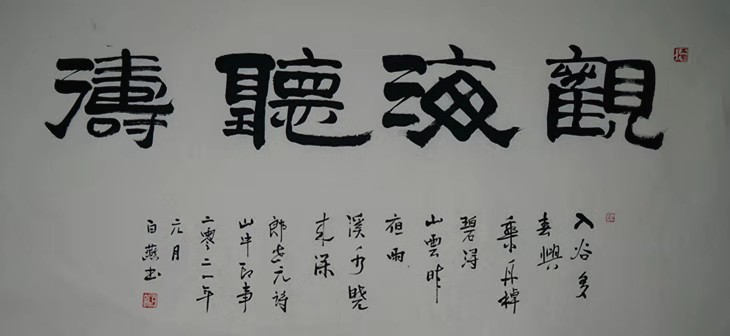 觀海聽濤
入谷多
春興
乘舟棹
碧潯
山雲昨
夜雨
溪水曉
來深
郎士元詩
山中即事
二零二一年
元月
白燕书